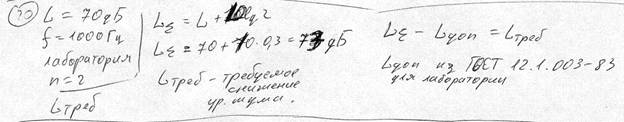 30
L = 70дБ
f = 1000Гц
лаборатория
n = 2
Lтреб
LΣ = L + 10lg2
LΣ = 70 + 10·0.3 = 73дБ
Lтреб - требуемое
снижение
ур. шума.
LΣ - Lдоп = Lтреб
Lдоп из ГОСТ 12.1.003-83
для лаборатории